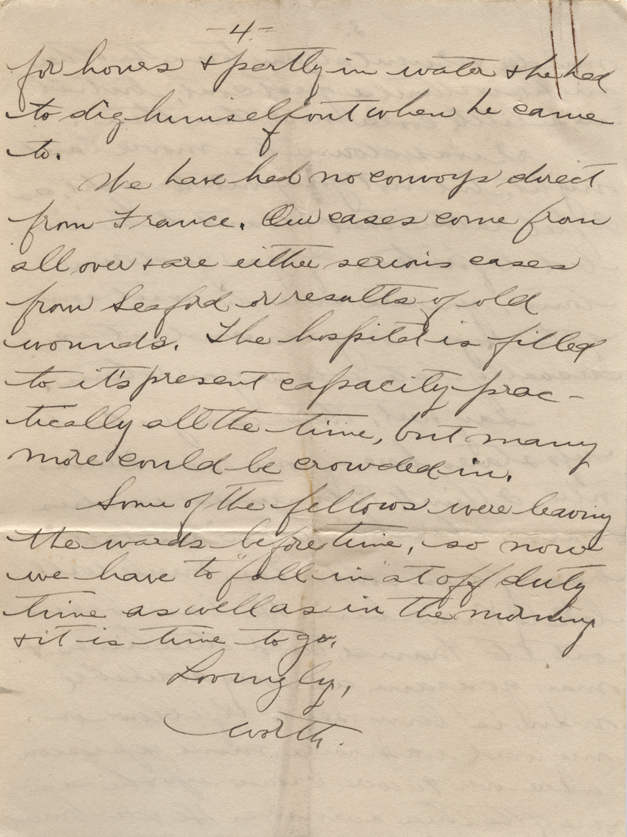 -4-
for hours + partly in water + he had
to dig himself out when he came
to.
We have had no convoys direct
from France. Our cases come from
all over + are either serious cases
from Seaford or results of old
wounds. The hospital is filled
to it's present capacity prac-
tically all the time, but many
more could be crowded in.
Some of the fellows were leaving
the wards before time, so now
we have to "fall in" at off duty
time as well as in the morning
+ it is time to go.
Lovingly,
Worth.